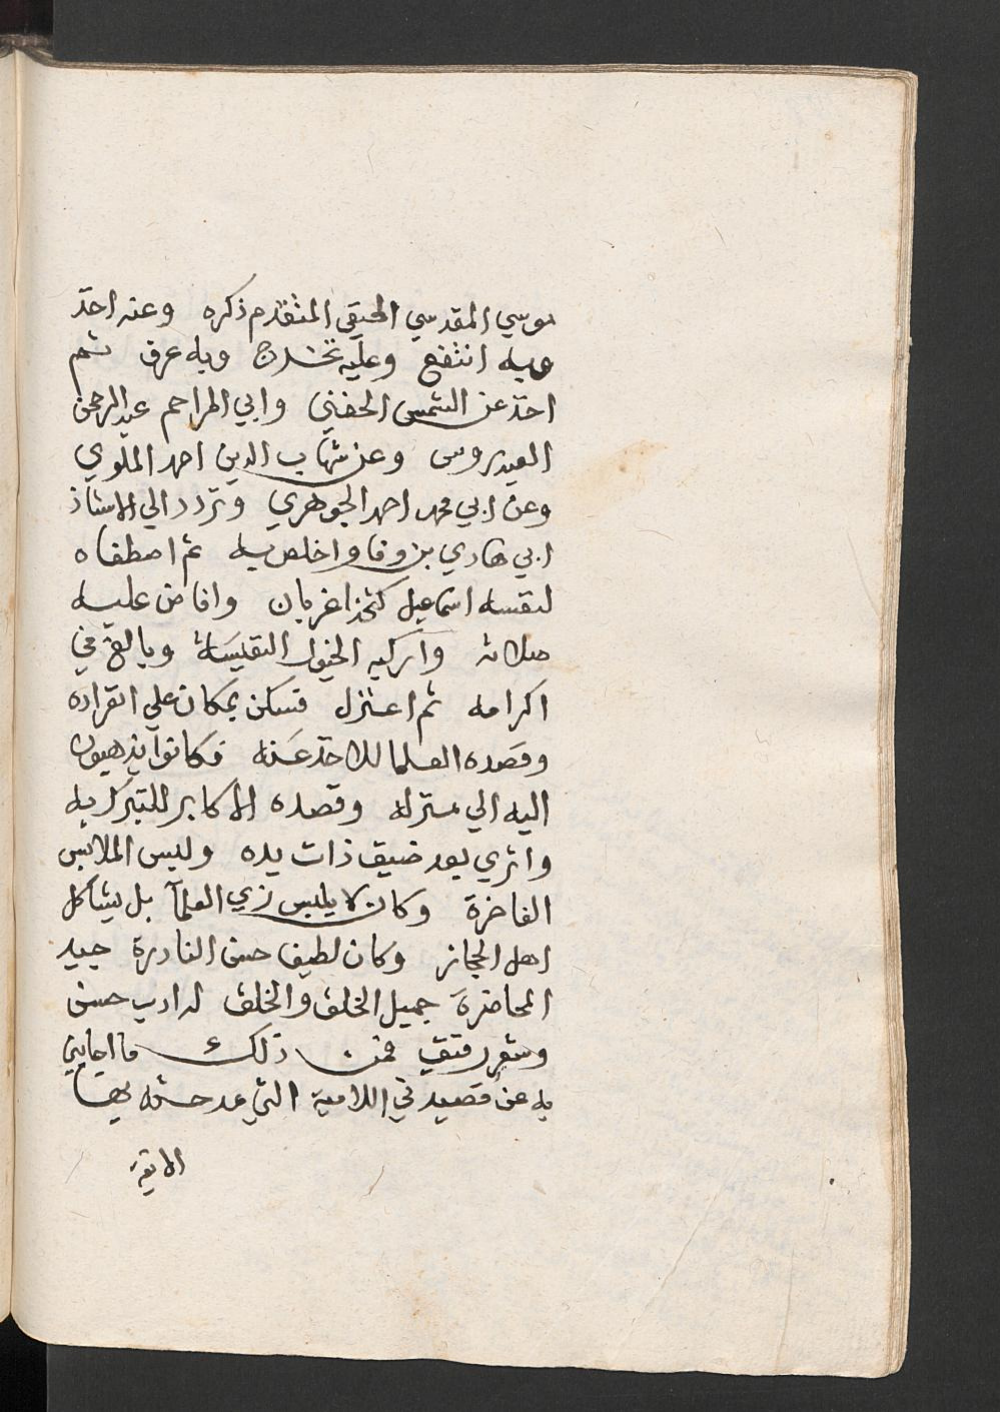 موسي المقدسي الحنيفي المتقدم ذكره وعنه اخذ
وبه انتفع وعليه تخرج وبه عرف ثم
اخذ عن الشمس الحفني وابي المراحم عبد الرحمن
العيدروس وعن شهاب الدين احمد الملوي
وعن ابي محمد احمد الجوهري وتردد الي الاستاذ
ابي هادي بن وفا واخلص به ثم اصطفاه
لنفسه اسماعيل كتخدا عزبان وافاض عليه
صلاته واركبه الخيول النفيسة وبالغ في
اكرامه ثم اعتزل فسكن بمكان علي انفراده
وقصده العلما للاخذ عنه فكانوا يذهبون
اليه الي منزله وقصده الاكابر للتبرك به
واثري بعد ضيق ذات يده ولبس الملابس
الفاخرة وكان لا يلبس زي العلمآ بل يشاكل
اهل الحجاز وكان لطيف حسن النادرة جيد
المحاضرة جميل الخلق والخلق له ادب حسن
وشعر رقيق فمن ذلك ما اجابني
به عن قصيدتي اللامية التي مدحته بها
الاتية